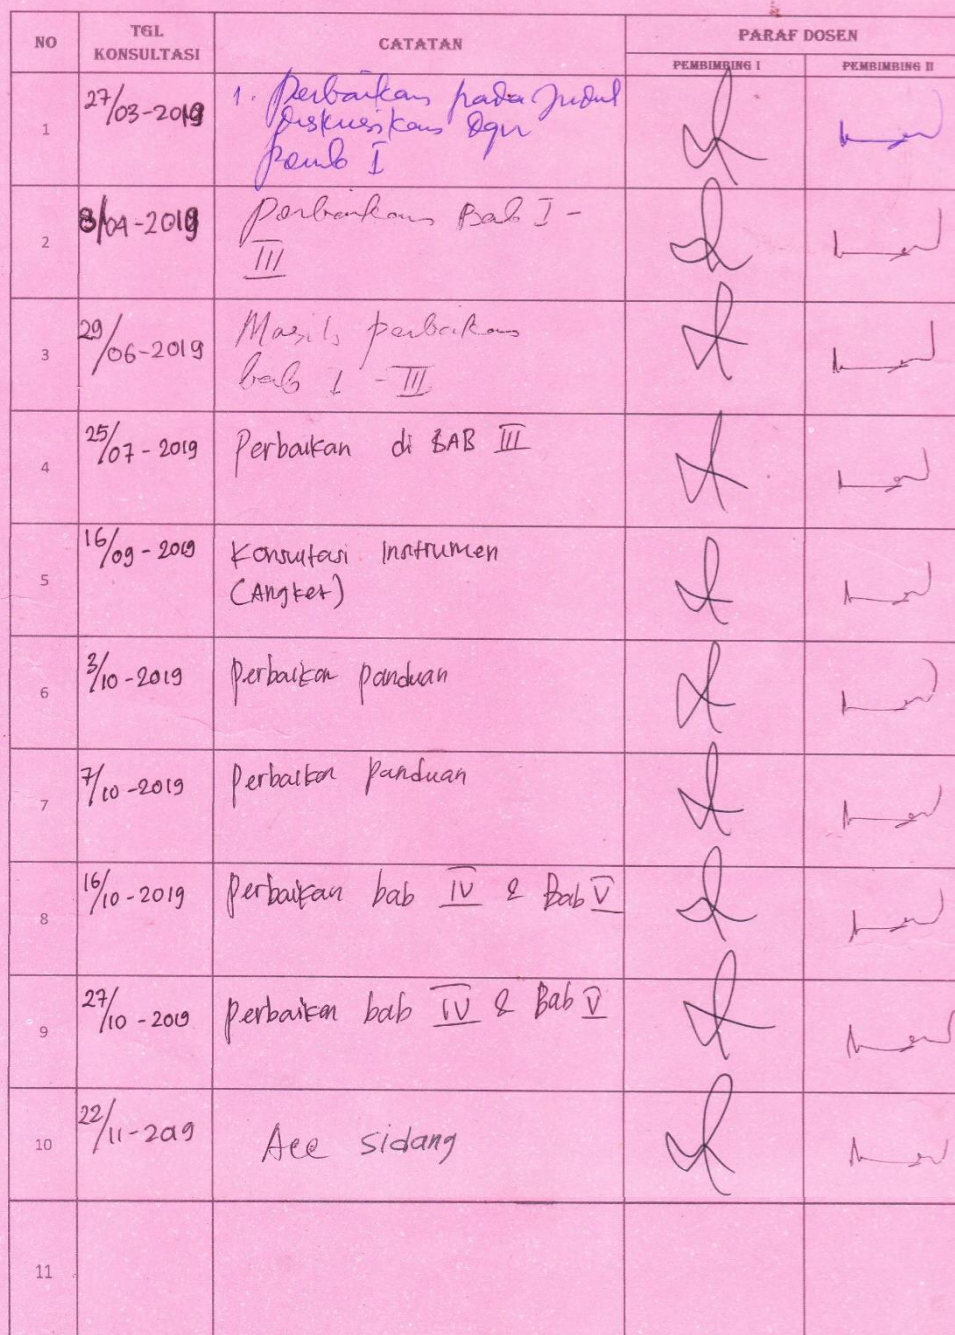 NO
TGL KONSULTASI
CATATAN
PARAF DOSEN
PEMBIMBING I
PEMBIMBING II
1
27/03-2019
1. Perbaikan pada Judul
diskusikan dgn
Pemb I
2
8/04-2019
perbaikan Bab I -
III
3
29/06-2019
Masih perbaikan
bab I - III
4
25/07-2019
Perbaikan di BAB III
5
16/09-2019
Konsultasi Instrumen
(Angket)
6
3/10-2019
Perbaikan panduan
7
7/10-2019
Perbaikan panduan
8
16/10-2019
Perbaikan bab IV & Bab V
9
27/10-2019
Perbaikan bab IV & Bab V
10
22/11-2019
Acc sidang
11